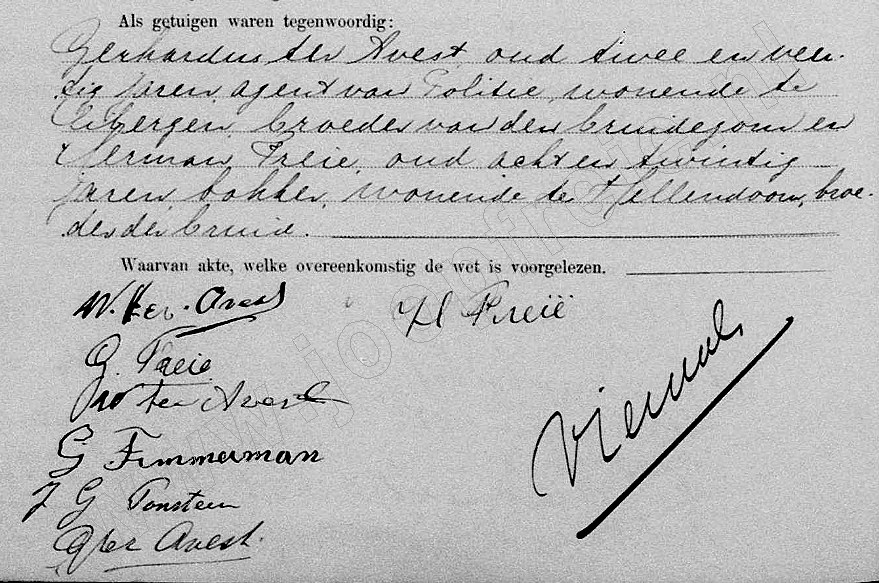 Als getuigen waren tegenwoordig:
Gerhardus ter Avest, oud twee en veer-
tig jaren, agent van Politie, wonende te
Borgen, broeder van den bruidegom en
Herman Freie, oud acht en twintig
jaren, bakker, wonende te Hellendoorn, broe-
der der bruid.
Waarvan akte, welke overeenkomstig de wet is voorgelezen.
W. ter Avest
H Freië
G. Freie
ter Avest
G Timmerman
J G Ponsteen
G ter Avest.